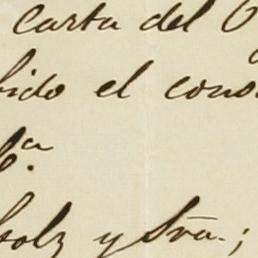 carta del
bido el cons
holz y Sra.;